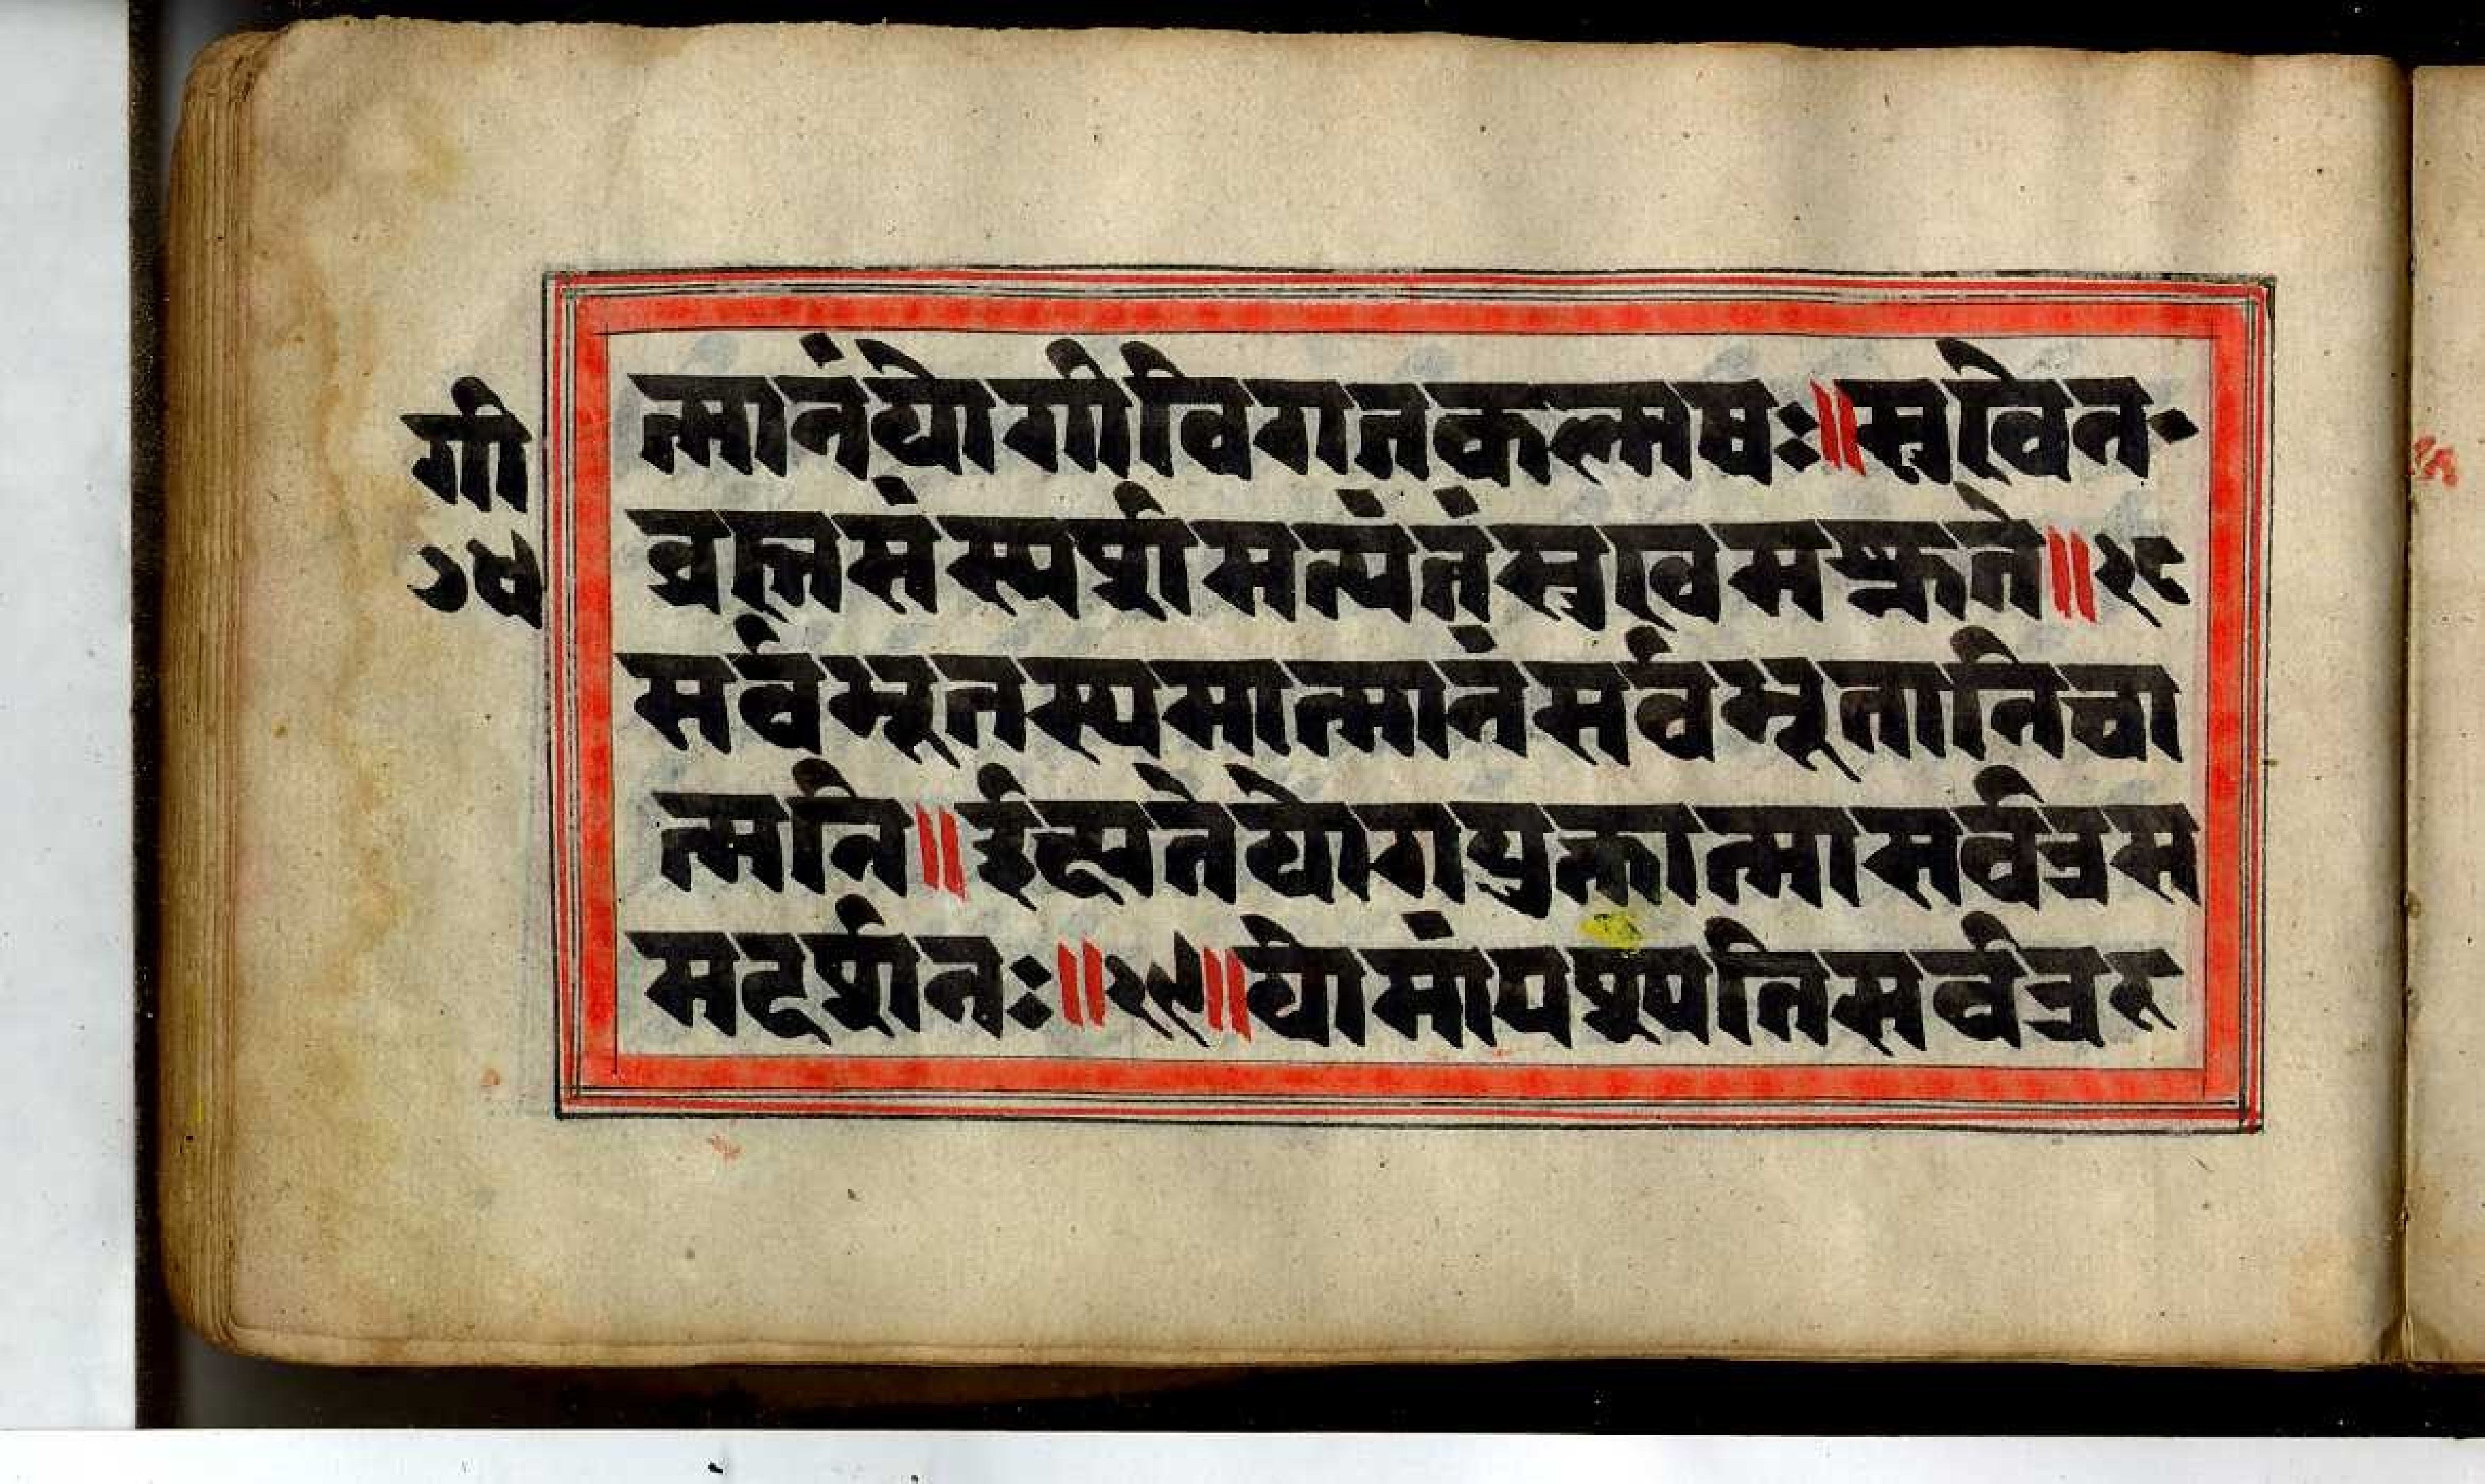 गी
७५
त्मानंयोगीविगतकल्मषः॥सुखेन
ब्रह्मसंस्पर्शमत्यंतंसुखमश्नुते॥२८
सर्वभूतस्थमात्मानंसर्वभूतानिचा
त्मनि॥ईक्ष्यतेयोगयुक्तात्मासर्वत्रस
मदर्शनः॥२९॥योमांपश्यतिसर्वत्रस